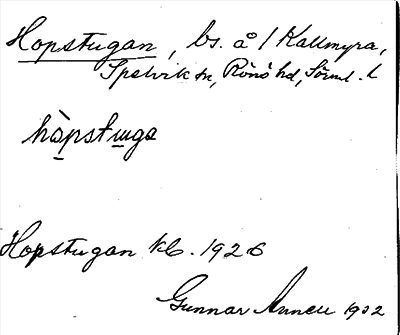 Hopstugan, bs. å / Kallmyra,
Spelvik sn, Rönö hd, Sörml. l.
hòpstuga
Hopstugan kb. 1926
Gunnar 1932